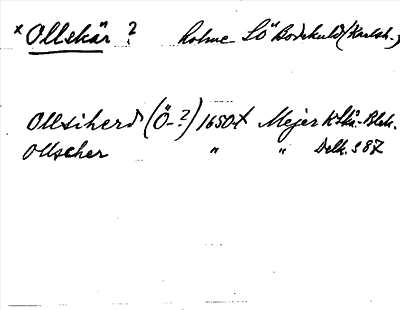 x Ollskär ? holme SO Bodekull (Karlsh.)
Ollsiherd (Ö-?) 1650t Mejer K Skå.-Blek.
Ollscher " " Delk. S 87